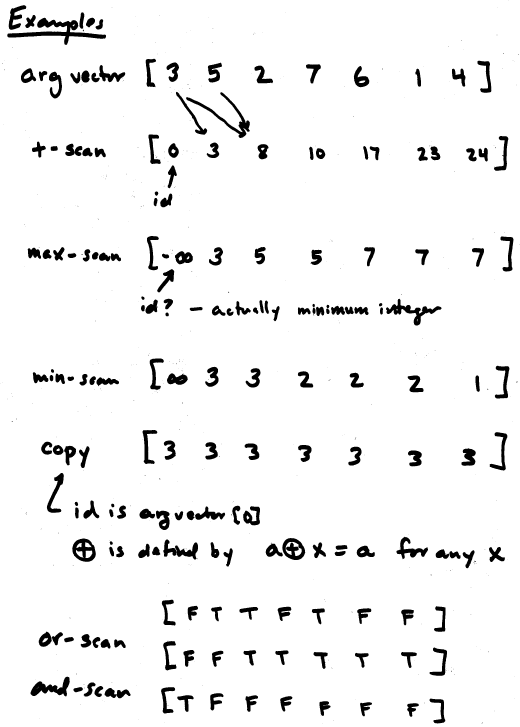 Examples
arg vector [ 3 5 2 7 6 1 4 ]
+-scan [ 0 3 8 10 17 23 24 ]
id
max-scan [ -∞ 3 5 5 7 7 7 ]
id? – actually minimum integer
min-scan [ ∞ 3 3 2 2 2 1 ]
copy [ 3 3 3 3 3 3 3 ]
id is arg vector [0]
⊕ is defined by a ⊕ x = a for any x
[ F T T F T F F ]
or-scan [ F F T T T T T ]
and-scan [ T F F F F F F ]